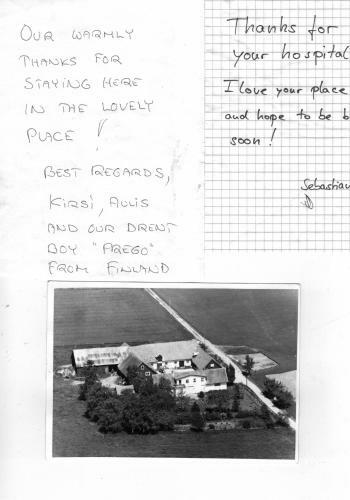 OUR WARMLY
THANKS FOR
STAYING HERE
IN THE LOVELY
PLACE !
BEST REGARDS,
KIRSI, AULIS
AND OUR DRENT
BOY "PREGO"
FROM FINLAND
Thanks for
your hospital
I love your place
and hope to be b
soon!
Sebastian